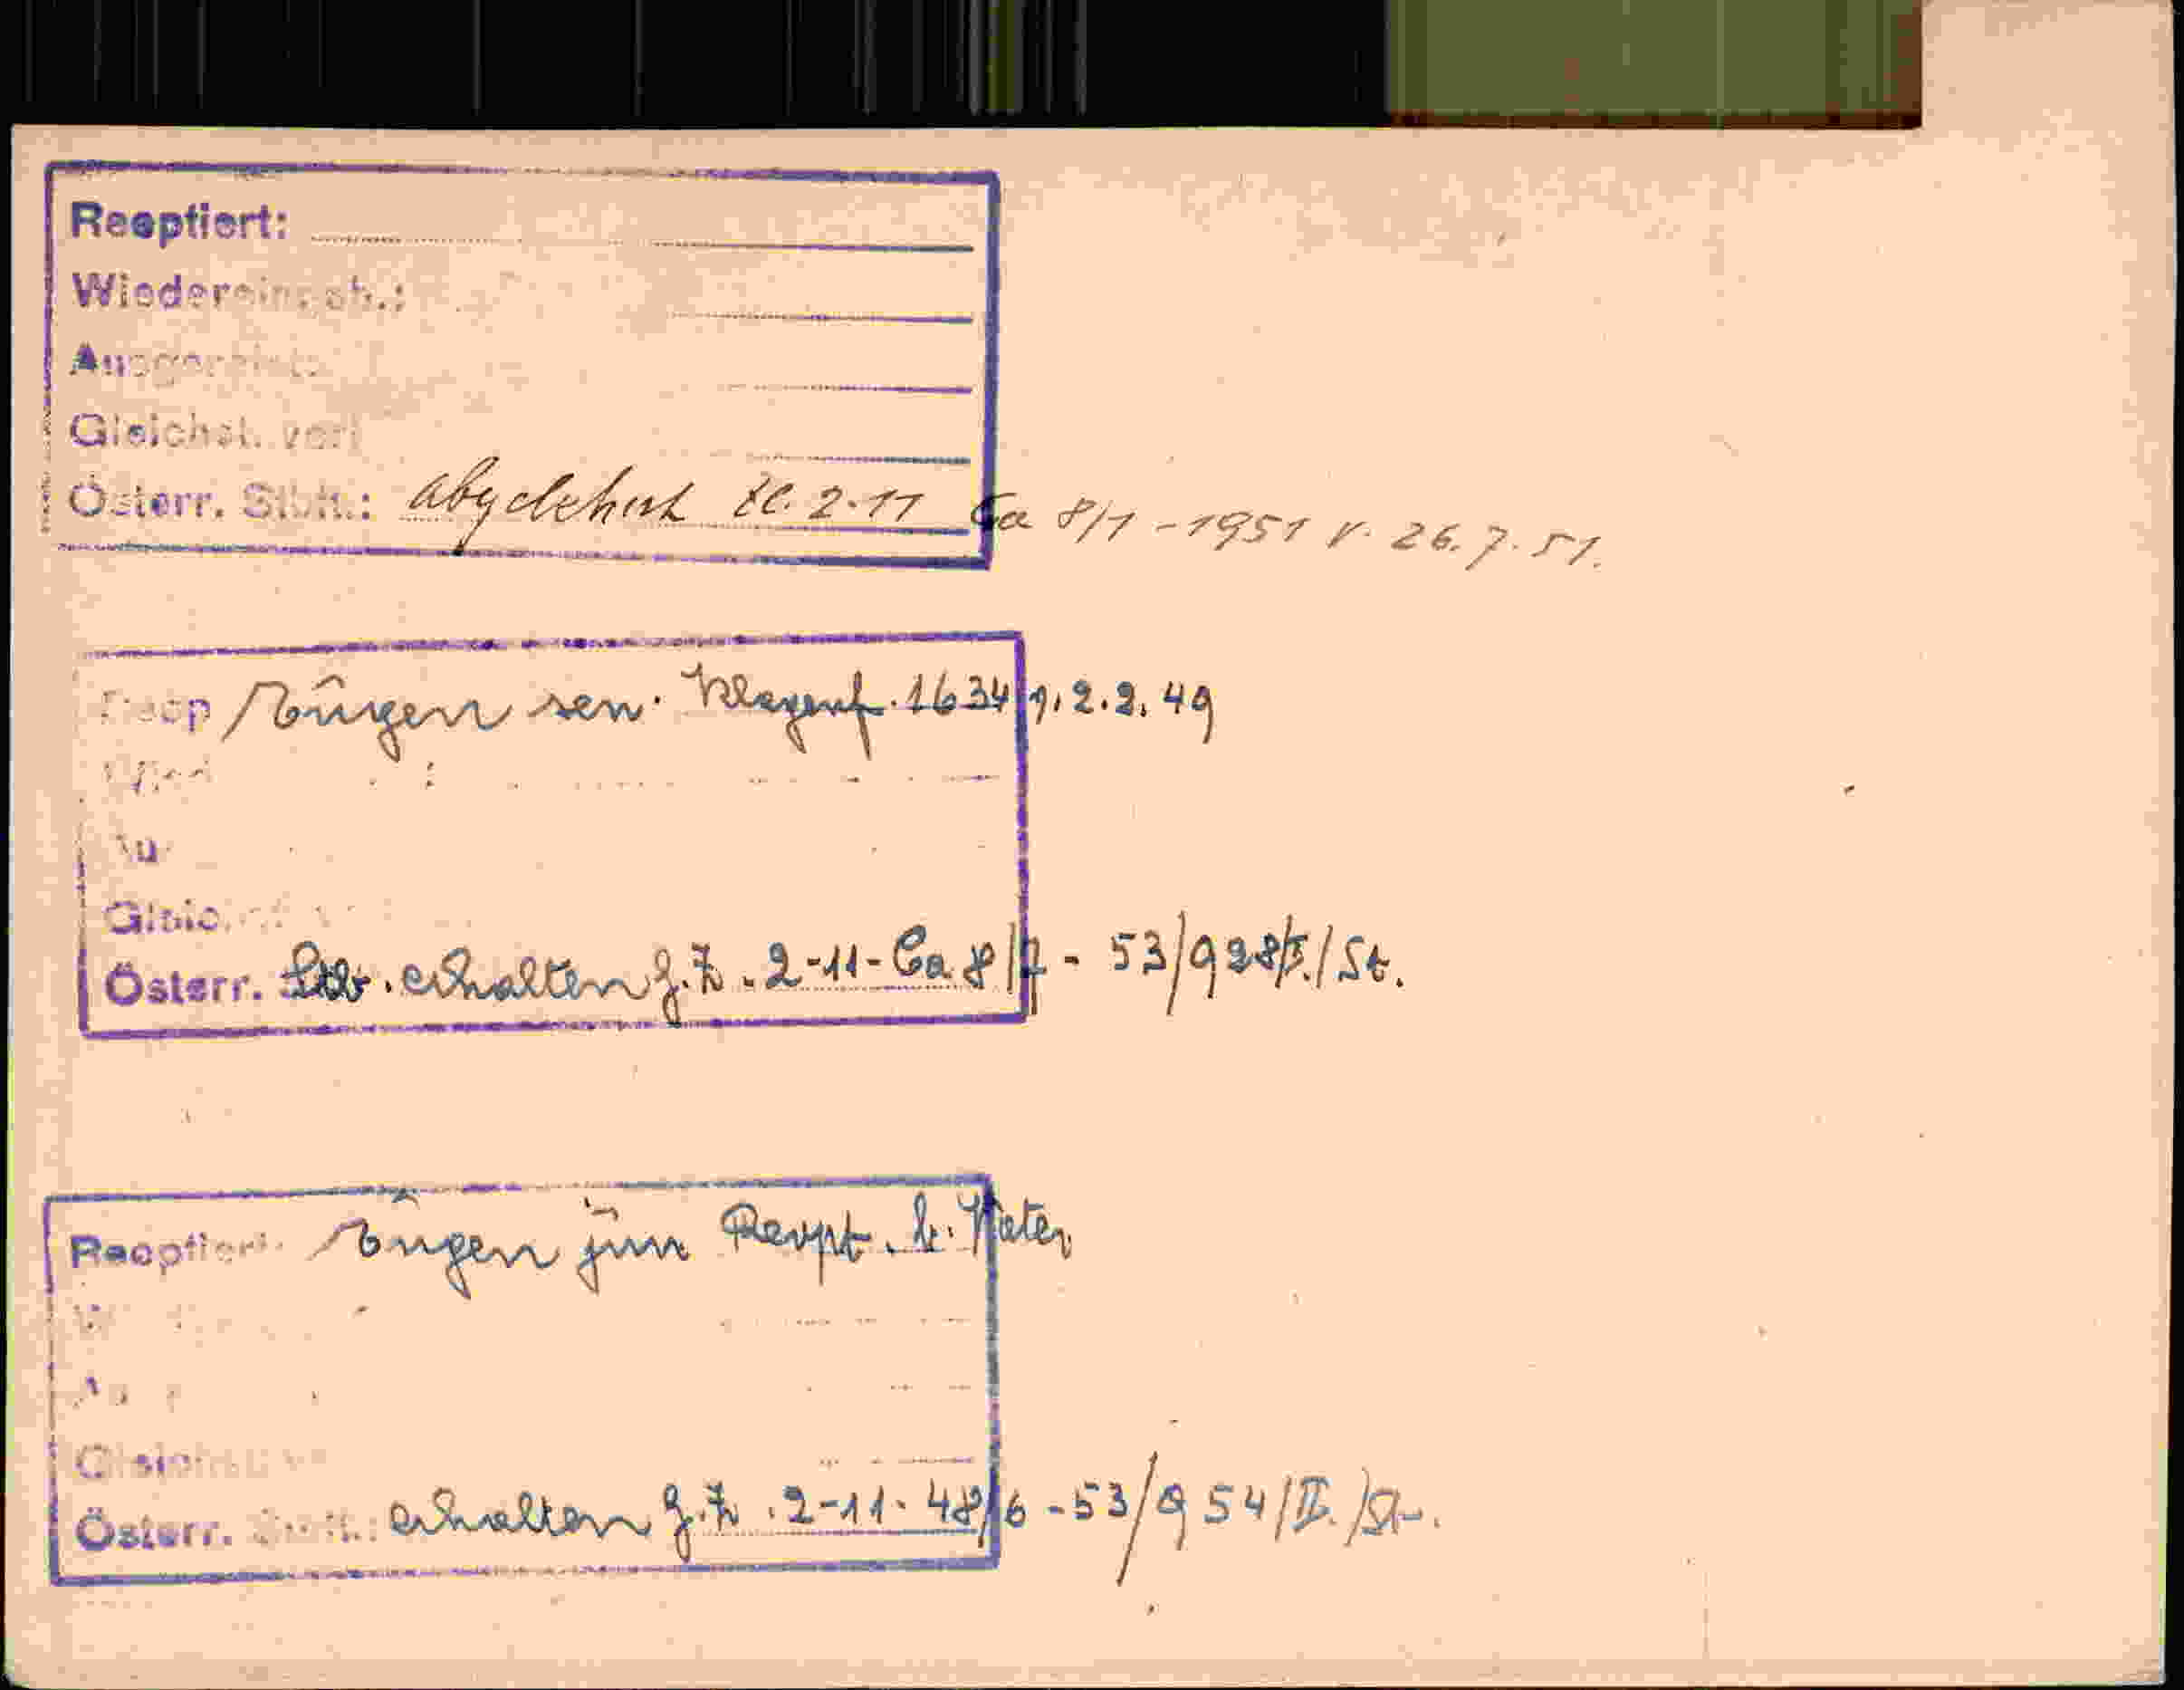 Reoptiert:
Wiedereingeb.:
Ausgereist:
Gleichst. verl
Österr. Stbh.: abgelehnt Zl. 2-11 Ca 8/1 - 1951 v. 26.7.51.
Reop Eugen sen. Klagenf. 1634 2.2.49
Wied
Au
Gleichst. v
Österr. Stb. erhalten G.Z. 2-11-Ca 8/7 - 53/928/I./St.
Reoptiert: Eugen jun Reopt. b. Vater
W
Au
Gleichst. ve
Österr. Stbh.: erhalten G.Z. 2-11-48/6 - 53/954/II./St.